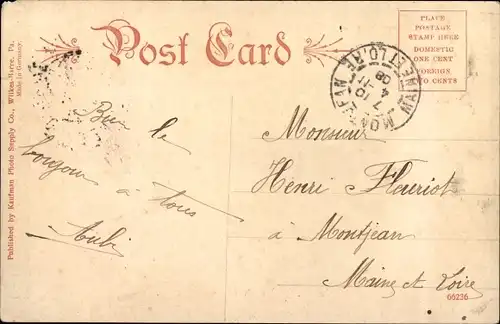 Post Card
PLACE
POSTAGE
STAMP HERE
DOMESTIC
ONE CENT
FOREIGN
TWO CENTS
MAINE ET LOIRE
Published by Kaufman Photo Supply Co., Wilkes-Barre, Pa.
Made in Germany.
Bien le
bonjour
à tous
Monsieur
Henri Fleuriot
à Montjean
Maine et Loire
66236